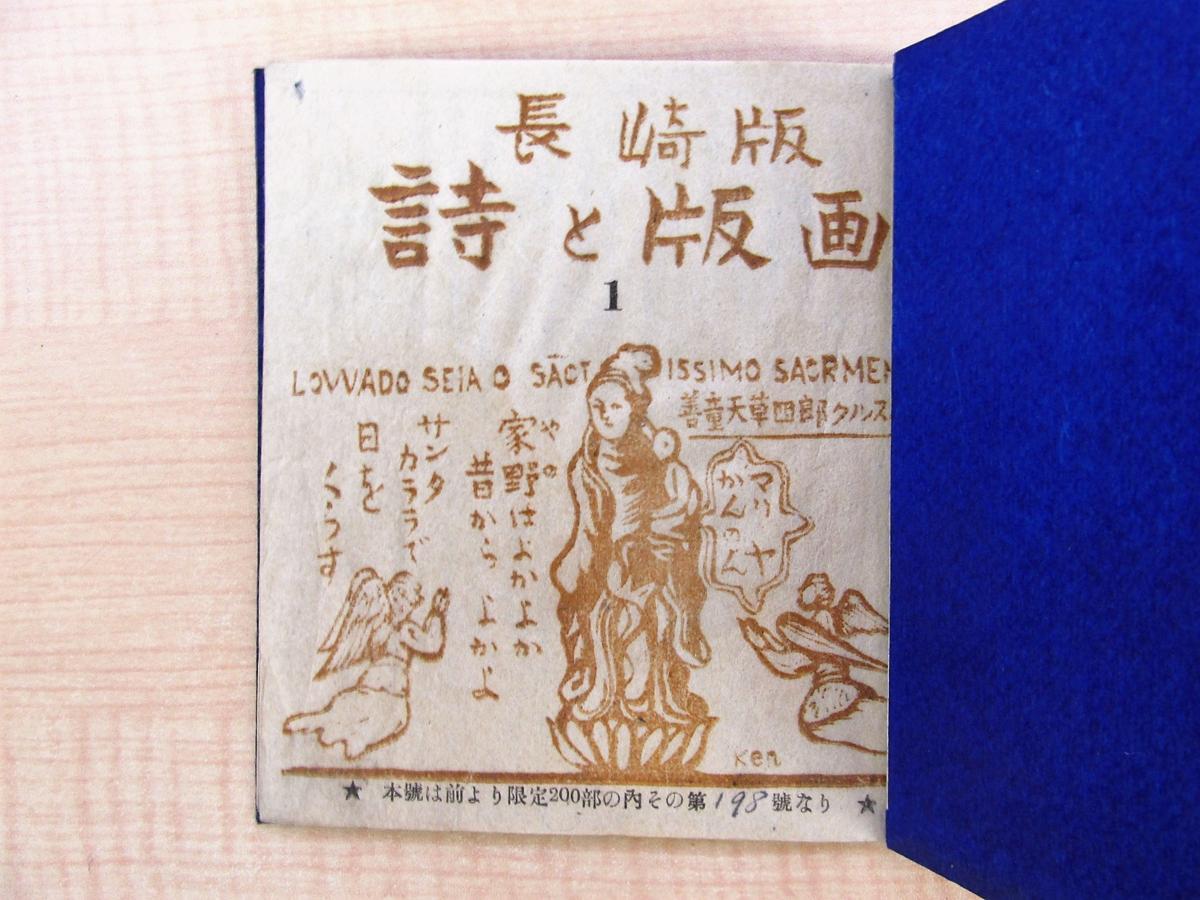 長崎版
詩と版画
1
LOVVADO SEIA O SÃCT
ISSIMO SACRMEN
善童天草四郎クルス
マリヤ
かんのん
やの
家野はよかよか
昔から よかよ
サンタ
カララで
日を
くらす
Ken
★ 本號は前より限定200部の內その第198號なり ★